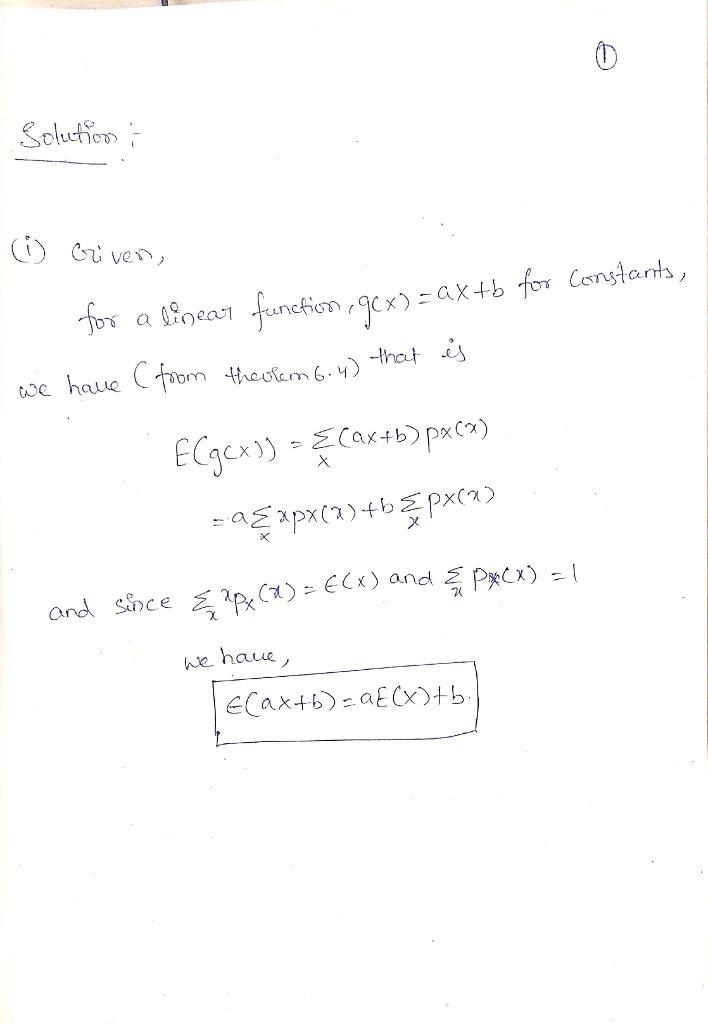 ①
Solution :-
(i) Given,
for a linear function, g(x) = ax+b for constants,
we have (from theorem 6.4) that is
E(g(x)) = Σ_x (ax+b) px(x)
= a Σ_x xpx(x) + b Σ_x px(x)
and since Σ_x xpx(x) = E(x) and Σ_x px(x) = 1
we have,
E(ax+b) = aE(x)+b.